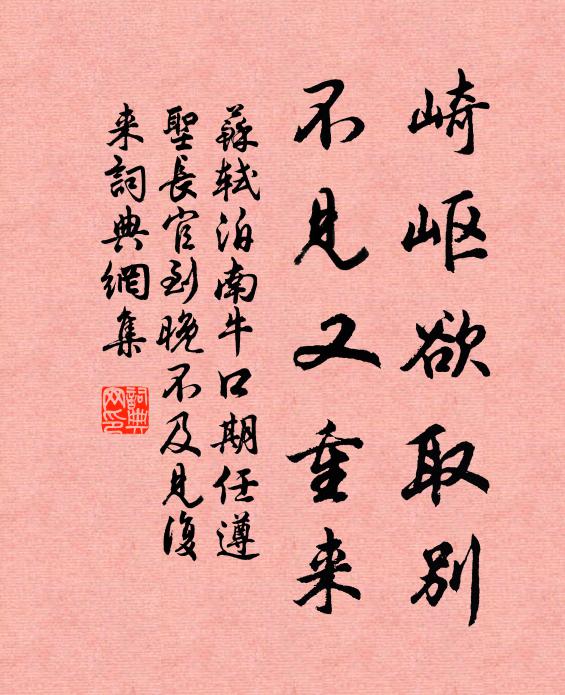 崎岖欲取别
不见又重来
蘇轼泊南牛口期任遵
聖長官到晚不及見復
来詞典網集
詞典网印